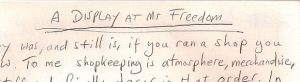 A DISPLAY AT MR FREEDOM
y was, and still is, if you ran a shop you
w. To me shopkeeping is atmosphere, merchandise,
in that order. In